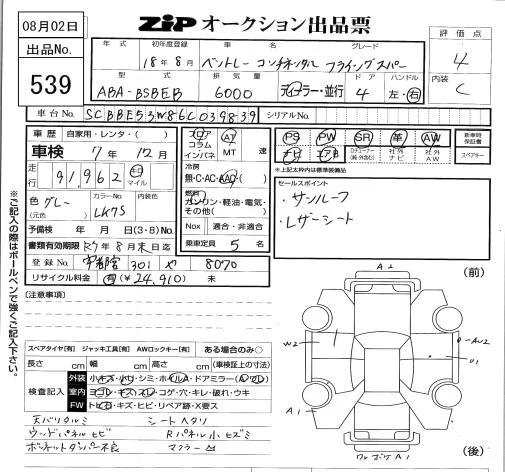 08月02日
ZIP オークション出品票
出品No.
539
評価点
4
内装
C
年式 初年度登録 車名 グレード
18年8月 ベントレー コンチネンタル フライングスパー
型式 排気量 ドア ハンドル
ABA-BSBEB 6000 ディーラー・並行 4 左・右
車台No. SCBBE53W86C039839 シリアルNo.
車歴 自家用・レンタ・( )
車検 7年 12月
走行 91,962 km マイル
色 グレー (元色) カラーNo. LK7S 内装色
予備検 年 月 日 (3・8) No.
書類有効期限 R7年8月末日迄
登録No. 宇都宮 301 や 8070
リサイクル料金 有(¥24,910) 未
フロア コラム インパネ
AT MT 速
冷房 無・C・AC・AAC
燃料 ガソリン・軽油・電気・その他( )
Nox 適合・非適合
乗車定員 5 名
PS PW SR 革 AW
ナビ エアB
社外ナビ 社外AW
新車時保証書
スペアキー
※上記太枠内は標準装備品
セールスポイント
・サンルーフ
・レザーシート
※ご記入の際はボールペンで強くご記入下さい。
[注意事項]
スペアタイヤ[有] ジャッキ工具[有] AWロックキー[有] ある場合のみ○
長さ cm 幅 cm 高さ cm (車検証上の寸法)
検査記入
外装 小キズ・小凹・シミ・ホイルA・ドアミラー(A・ワレ)
室内 ヨゴレ・キズ・スレ・コゲ・穴・キレ・破れ・ウキ
FW トビ石・キズ・ヒビ・リペア跡・X要ス
天バリタルミ シートヘタリ
ウッドパネルヒビ Rパネル小ヒズミ
ボンネットダンパー不良 マフラー凹
(前)
A2
W2
U1
A1
(後)